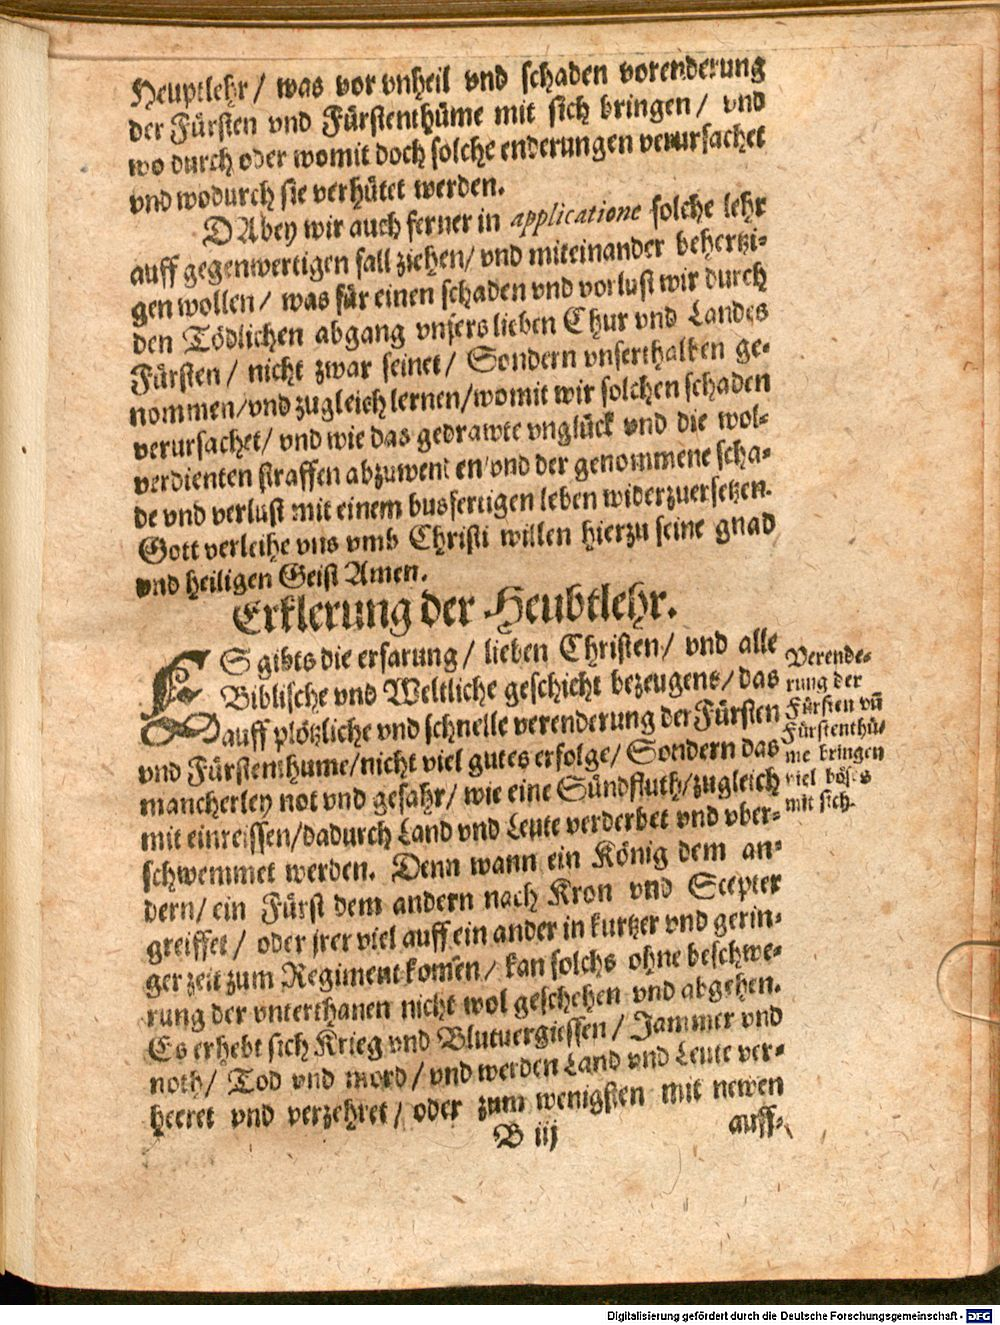 Heuptlehr / was vor vnheil vnd schaden vorenderung
der Fürsten vnd Fürstenthüme mit sich bringen / vnd
wo durch oder womit doch solche enderungen verursachet
vnd wodurch sie verhütet werden.
DAbey wir auch ferner in applicatione solche lehr
auff gegenwertigen fall ziehen / vnd miteinander behertzi-
gen wollen / was für einen schaden vnd vorlust wir durch
den Tödlichen abgang vnsers lieben Chur vnd Landes
Fürsten / nicht zwar seinet / Sondern vnserthalben ge-
nommen / vnd zugleich lernen / womit wir solchen schaden
verursachet / vnd wie das gedrawte vnglück vnd die wol-
verdienten straffen abzuwenden / vnd der genommene scha-
de vnd verlust mit einem busfertigen leben widerzuersetzen.
Gott verleihe vns vmb Christi willen hierzu seine gnad
vnd heiligen Geist Amen.
Erklerung der Heubtlehr.
ES gibts die erfarung / lieben Christen / vnd alle
Biblische vnd Weltliche geschicht bezeugens / das
auff plötzliche vnd schnelle verenderung der Fürsten
vnd Fürstenthume / nicht viel gutes erfolge / Sondern das
mancherley not vnd gefahr / wie eine Sündfluth / zugleich
mit einreissen / dadurch Land vnd Leute verderbet vnd vber-
schwemmet werden. Denn wann ein König dem an-
dern / ein Fürst dem andern nach Kron vnd Scepter
greiffet / oder jrer viel auff ein ander in kurtzer vnd gerin-
ger zeit zum Regiment komen / kan solchs ohne beschwe-
rung der vnterthanen nicht wol geschehen vnd abgehen.
Es erhebt sich Krieg vnd Blutuergiessen / Jammer vnd
noth / Tod vnd mord / vnd werden Land vnd Leute ver-
heeret vnd verzehret / oder zum wenigsten mit newen
B iij
auff-
Verende-
rung der
Fürsten vñ
Fürstenthü-
me bringen
viel böses
mit sich.
Digitalisierung gefördert durch die Deutsche Forschungsgemeinschaft - DFG